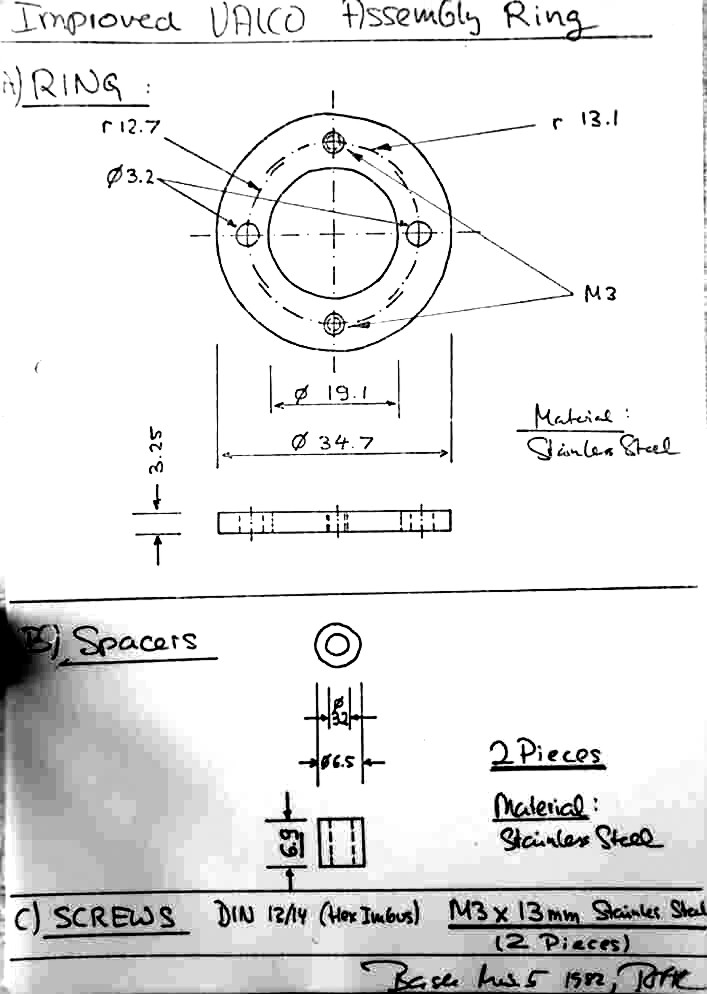 Improved VALCO Assembly Ring
A) RING :
r 12.7
r 13.1
Ø3.2
M3
Ø 19.1
Ø 34.7
Material :
Stainless Steel
3.25
B) Spacers
Ø
3.2
Ø6.5
2 Pieces
Material :
Stainless Steel
6.9
C) SCREWS DIN 13/14 (Hex Imbus) M3 x 13mm Stainless Steel
(2 Pieces)
5 1982,